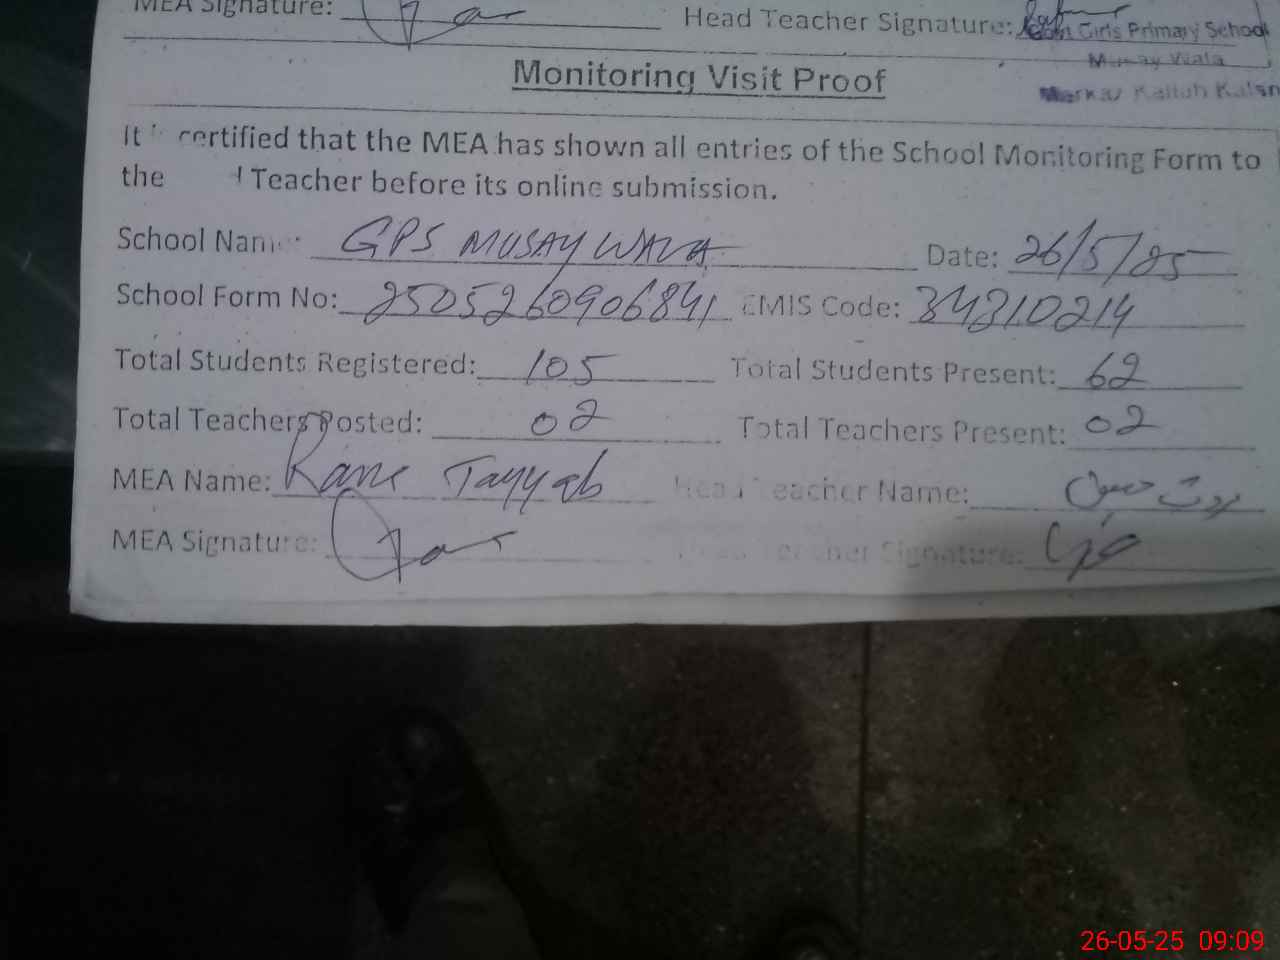 MEA Signature: Head Teacher Signature:
Girls Primary School
Musay Wala
Markaz
Monitoring Visit Proof
It certified that the MEA has shown all entries of the School Monitoring Form to
the Teacher before its online submission.
School Name: GPS MUSAY WALA Date: 26/5/25
School Form No: 2505260906841 EMIS Code: 34310214
Total Students Registered: 105 Total Students Present: 62
Total Teachers Posted: 02 Total Teachers Present: 02
MEA Name: Rana Tayyab Head Teacher Name:
MEA Signature: Head Teacher Signature:
26-05-25 09:09